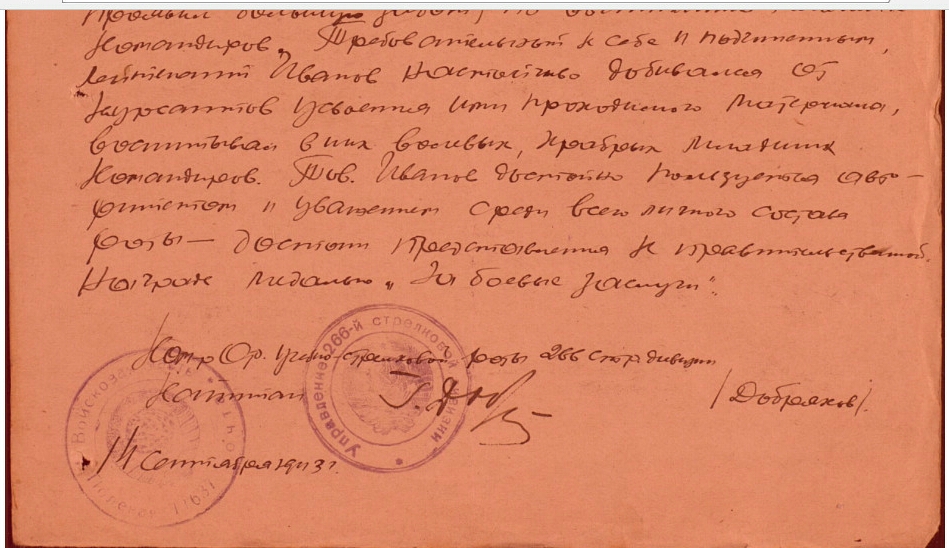 проделал большую работу по воспитанию младших
Командиров. Требовательный к себе и подчиненным,
Лейтенант Иванов настойчиво добивался от
курсантов усвоения ими проходимого материала,
воспитывая в них волевых, храбрых младших
Командиров. Тов. Иванов достойно пользуется авто-
ритетом и уважением среди всего личного состава
роты — достоин представления к правительственной
награде медалью „За боевые заслуги".
Ком-р От. Учебно-стрелковой роты 266 стр. дивизии
Капитан /Добряков/.
14 Сентября 1943 г.
Управление 266-й стрелковой дивизии